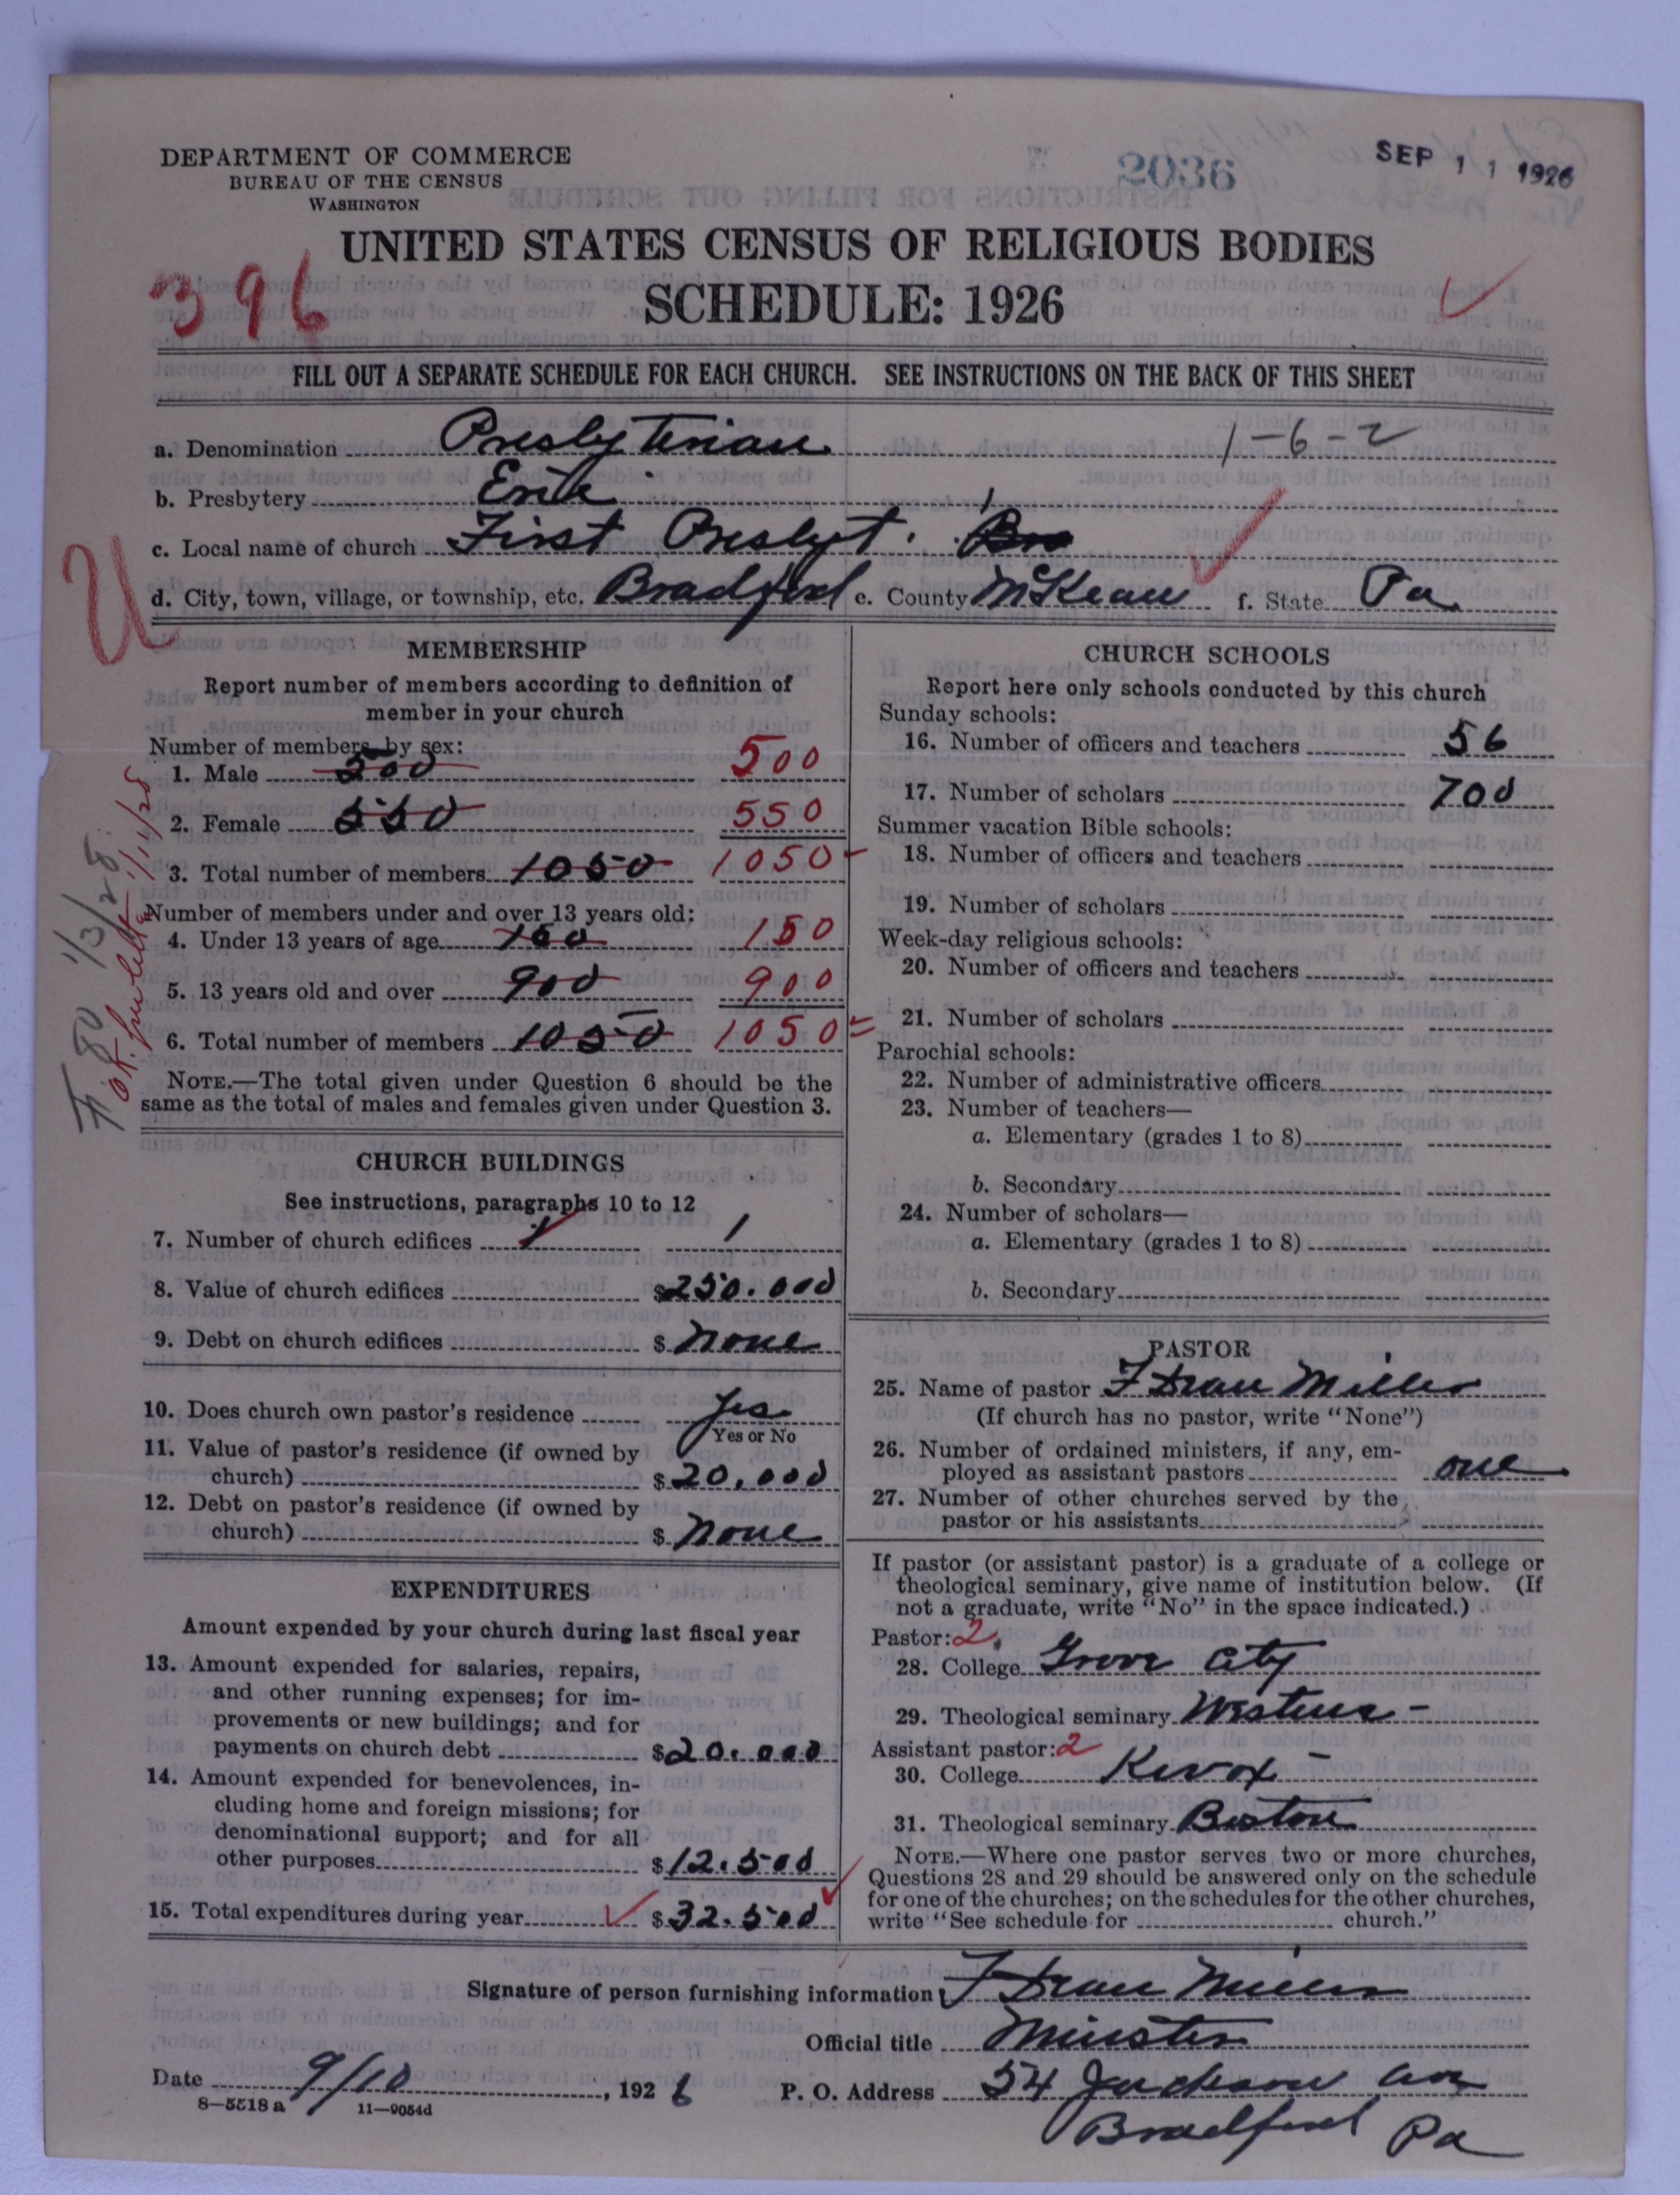 DEPARTMENT OF COMMERCE
BUREAU OF THE CENSUS
WASHINGTON
2036
SEP 11 1926
UNITED STATES CENSUS OF RELIGIOUS BODIES
396
SCHEDULE: 1926
FILL OUT A SEPARATE SCHEDULE FOR EACH CHURCH. SEE INSTRUCTIONS ON THE BACK OF THIS SHEET
a. Denomination Presbyterian 1-6-2
b. Presbytery Erie
c. Local name of church First Presbyt. Bra
U
d. City, town, village, or township, etc. Bradford e. County McKean f. State Pa
MEMBERSHIP
Report number of members according to definition of
member in your church
Number of members by sex:
1. Male 500 500
2. Female 550 550
3. Total number of members 1050 1050
Number of members under and over 13 years old:
4. Under 13 years of age 150 150
5. 13 years old and over 900 900
6. Total number of members 1050 1050
NOTE.—The total given under Question 6 should be the
same as the total of males and females given under Question 3.
1/3/28
1/11/28
CHURCH BUILDINGS
See instructions, paragraphs 10 to 12
7. Number of church edifices 1 1
8. Value of church edifices $250.000
9. Debt on church edifices $ none
10. Does church own pastor's residence Yes
Yes or No
11. Value of pastor's residence (if owned by
church) $20,000
12. Debt on pastor's residence (if owned by
church) $ none
EXPENDITURES
Amount expended by your church during last fiscal year
13. Amount expended for salaries, repairs,
and other running expenses; for im-
provements or new buildings; and for
payments on church debt $20.000
14. Amount expended for benevolences, in-
cluding home and foreign missions; for
denominational support; and for all
other purposes $12.500
15. Total expenditures during year $32.500
CHURCH SCHOOLS
Report here only schools conducted by this church
Sunday schools:
16. Number of officers and teachers 56
17. Number of scholars 700
Summer vacation Bible schools:
18. Number of officers and teachers
19. Number of scholars
Week-day religious schools:
20. Number of officers and teachers
21. Number of scholars
Parochial schools:
22. Number of administrative officers
23. Number of teachers—
a. Elementary (grades 1 to 8)
b. Secondary
24. Number of scholars—
a. Elementary (grades 1 to 8)
b. Secondary
PASTOR
25. Name of pastor F Dean Miller
(If church has no pastor, write "None")
26. Number of ordained ministers, if any, em-
ployed as assistant pastors one
27. Number of other churches served by the
pastor or his assistants
If pastor (or assistant pastor) is a graduate of a college or
theological seminary, give name of institution below. (If
not a graduate, write "No" in the space indicated.)
Pastor: 2
28. College Grove City
29. Theological seminary Western -
Assistant pastor: 2
30. College Knox
31. Theological seminary Boston
NOTE.—Where one pastor serves two or more churches,
Questions 28 and 29 should be answered only on the schedule
for one of the churches; on the schedules for the other churches,
write "See schedule for church."
Signature of person furnishing information F Dean Miller
Official title Minister
Date 9/10, 1926
P. O. Address 54 Jackson Ave
Bradford Pa
8-5518 a 11-9054d